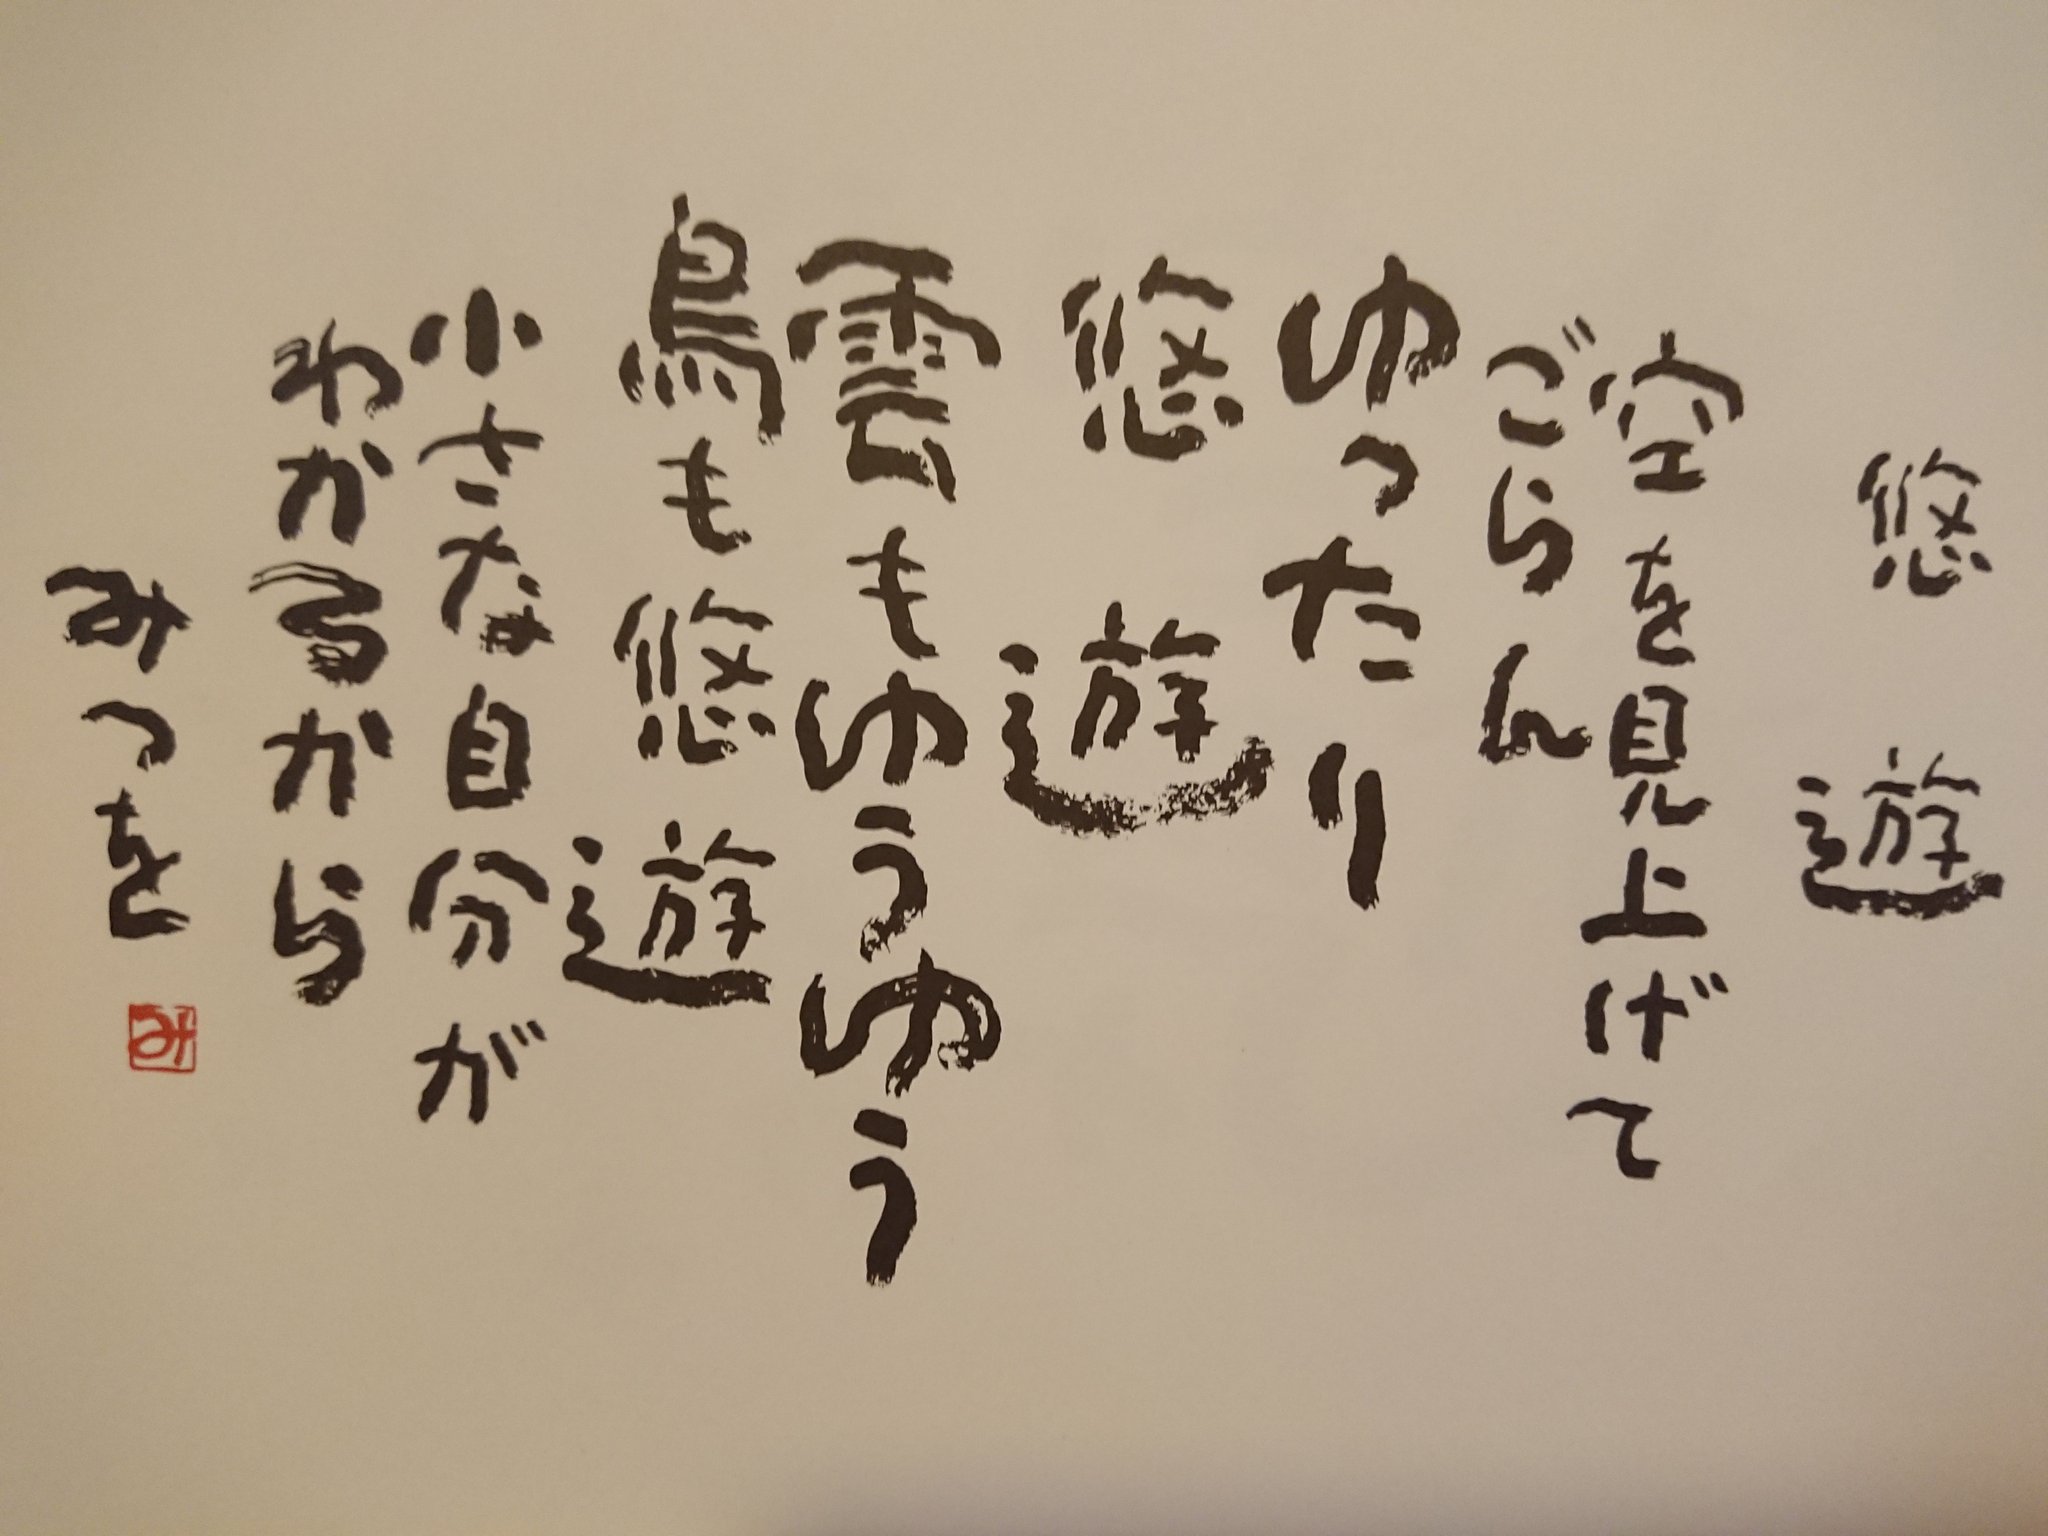 悠遊
空を見上げて
ごらん
ゆったり
悠遊
雲もゆうゆう
鳥も悠遊
小さな自分が
わかるから
みつを
み